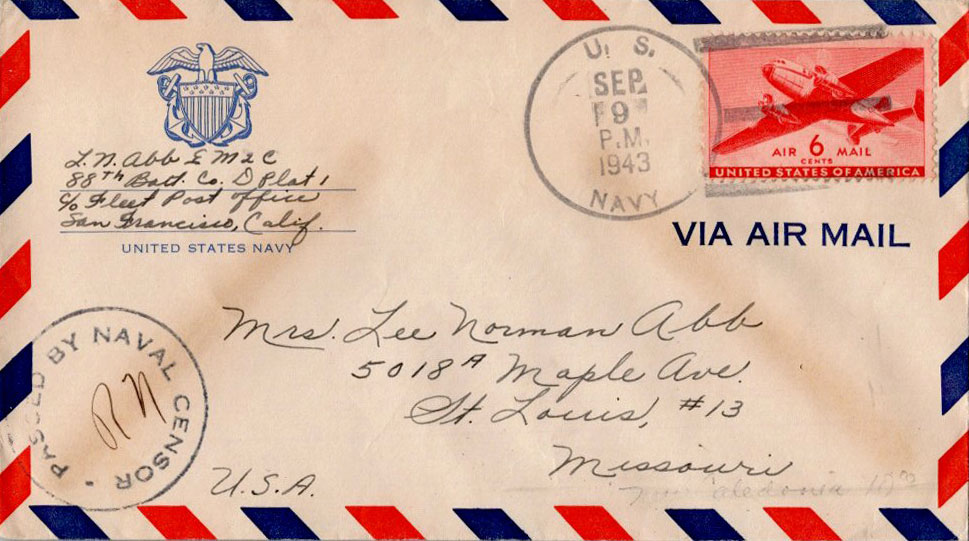 L. N. Abb E M 2 C
88th Batt. Co. D Plat 1
c/o Fleet Post office
San Francisco, Calif.
UNITED STATES NAVY
U. S.
SEP
9
P.M.
1943
NAVY
AIR 6 MAIL
CENTS
UNITED STATES OF AMERICA
VIA AIR MAIL
Mrs. Lee Norman Abb
5018A Maple Ave.
St. Louis, #13
Missouri
U.S.A.
PASSED BY NAVAL CENSOR
RN
Caledonia